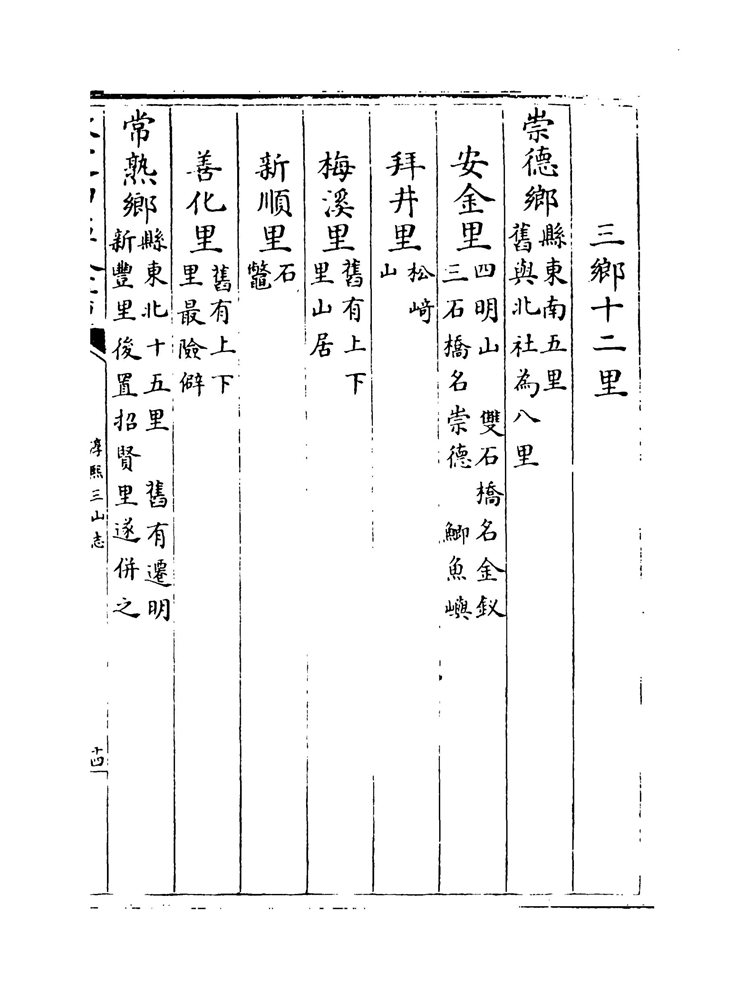 三鄉十二里
崇德鄉縣東南五里
舊與北社為八里
安金里四明山 雙石橋名金釵
三石橋名崇德 鯽魚嶼
拜井里松﨑
山
梅溪里舊有上下
里山居
新順里石
鼈
善化里舊有上下
里最險僻
常熟鄉縣東北十五里 舊有遷明
新豐里後置招賢里遂併之
淳熙三山志
十四